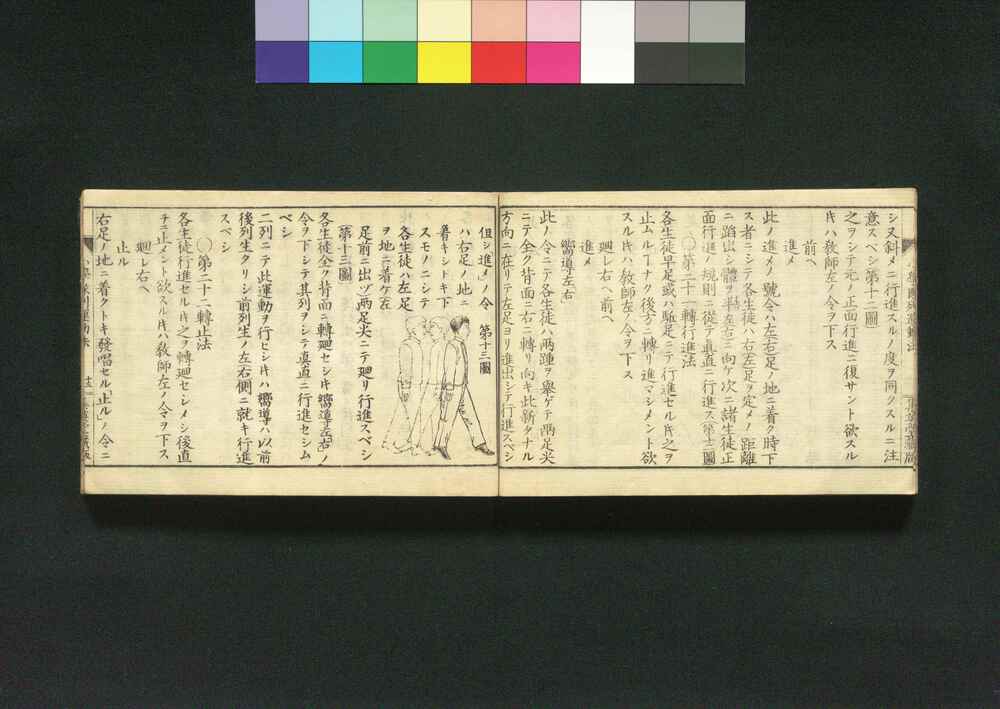 シ又斜メニ行進スルノ度ヲ同クスルニ注
意スベシ第十二圖
之ヲシテ元ノ正面行進ニ復サント欲スル
𪜈ハ教師左ノ令ヲ下ス
前ヘ
進メ
此ノ進メノ號令ハ左右足ノ地ニ着ク時下
ス者ニシテ各生徒ハ右左足ヲ定メノ距離
ニ蹈出シ體ヲ半左右ニ向ケ次ニ諸生徒正
面行進ノ規則ニ從テ眞直ニ行進ス第十二圖
〇第二十一轉行進法
各生徒早足或ハ駈足ニテ行進セルトキ之ヲ
止ムルコナク後方ニ轉リ進マシメント欲
スルトキハ教師左ノ令ヲ下ス
廻レ右ヘ前ヘ
進メ
嚮導左右
此ノ令ニテ各生徒ハ兩踵ヲ擧ゲテ兩足尖
ニテ全ク背面ニ右ニ轉リ向キ此新タナル
方向ニ在リテ左足ヨリ進出シテ行進スベシ
但シ「進メ」ノ令
ハ右足ノ地ニ
着キントキ下
スモノニシテ
各生徒ハ左足
ヲ地ニ着ケ右
足前ニ出ヅ兩足尖ニテ廻リ行進スベシ
第十三圖
第十三圖
各生徒全ク背面ニ轉廻セシトキ「嚮導左右」ノ
令ヲ下シテ其列ヲシテ眞直ニ行進セシム
ベシ
二列ニテ此運動ヲ行セシトキハ嚮導ハ以前
後列生タリシ前列生ノ左右側ニ就キ行進
スベシ
〇第二十二轉止法
各生徒行進セルトキ之ヲ轉廻セシメシ後直
チニ止メント欲スルトキハ教師左ノ令ヲ下ス
廻レ右ヘ
止ル
右足ノ地ニ着クトキ發唱セル「止ル」ノ令ニ